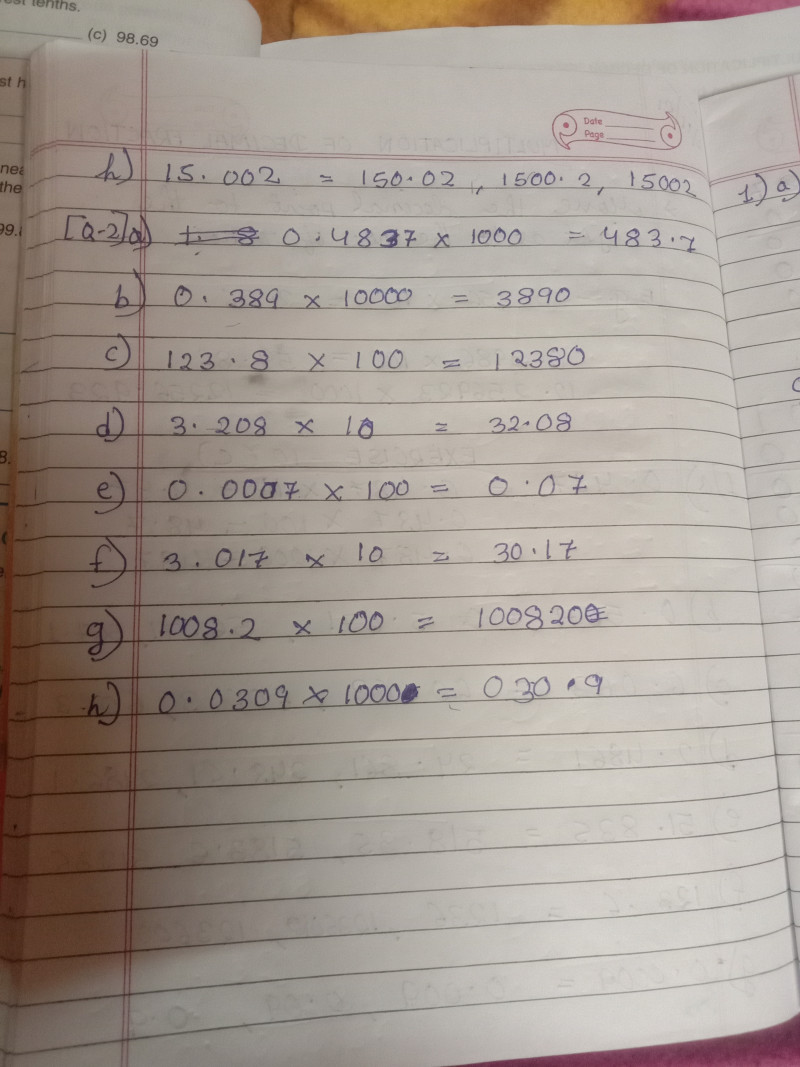 (c) 98.69
Date
Page
h) 15.002 = 150.02, 1500.2, 15002
[Q-2]a) 0.4837 x 1000 = 483.7
b) 0.389 x 10000 = 3890
c) 123.8 x 100 = 12380
d) 3.208 x 10 = 32.08
e) 0.0007 x 100 = 0.07
f) 3.017 x 10 = 30.17
g) 1008.2 x 100 = 100820
h) 0.0309 x 1000 = 030.9
1) a)